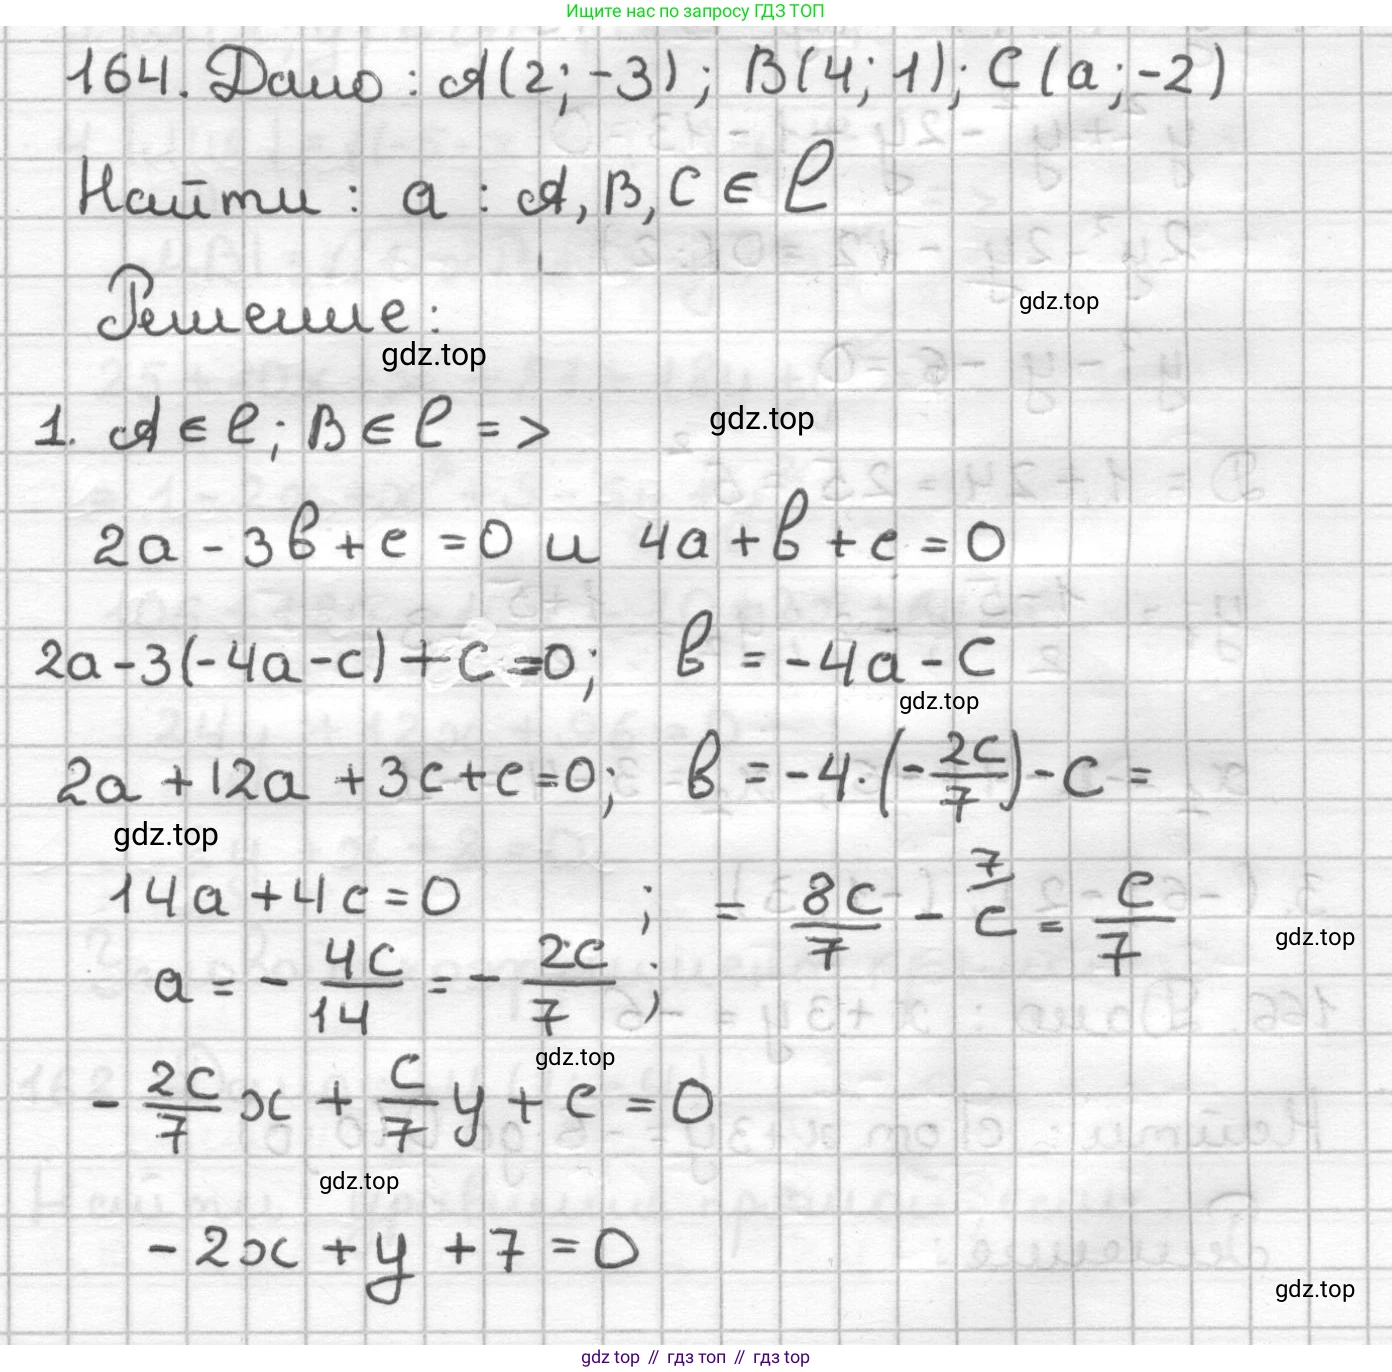 Ищите нас по запросу ГДЗ ТОП
164. Дано: A(2; -3); B(4; 1); C(a; -2)
Найти: a: A, B, C ∈ l
gdz.top
Решение:
gdz.top
1. A ∈ l; B ∈ l =>
gdz.top
2a - 3b + c = 0 и 4a + b + c = 0
2a - 3(-4a - c) + c = 0; b = -4a - c
gdz.top
2a + 12a + 3c + c = 0; b = -4 · (-2c/7) - c =
gdz.top
14a + 4c = 0 ; = 8c/7 - 7/c = c/7
gdz.top
a = - 4c/14 = - 2c/7 ;
gdz.top
- 2c/7 x + c/7 y + c = 0
gdz.top
- 2x + y + 7 = 0
gdz.top
gdz top // гдз топ // gdz top